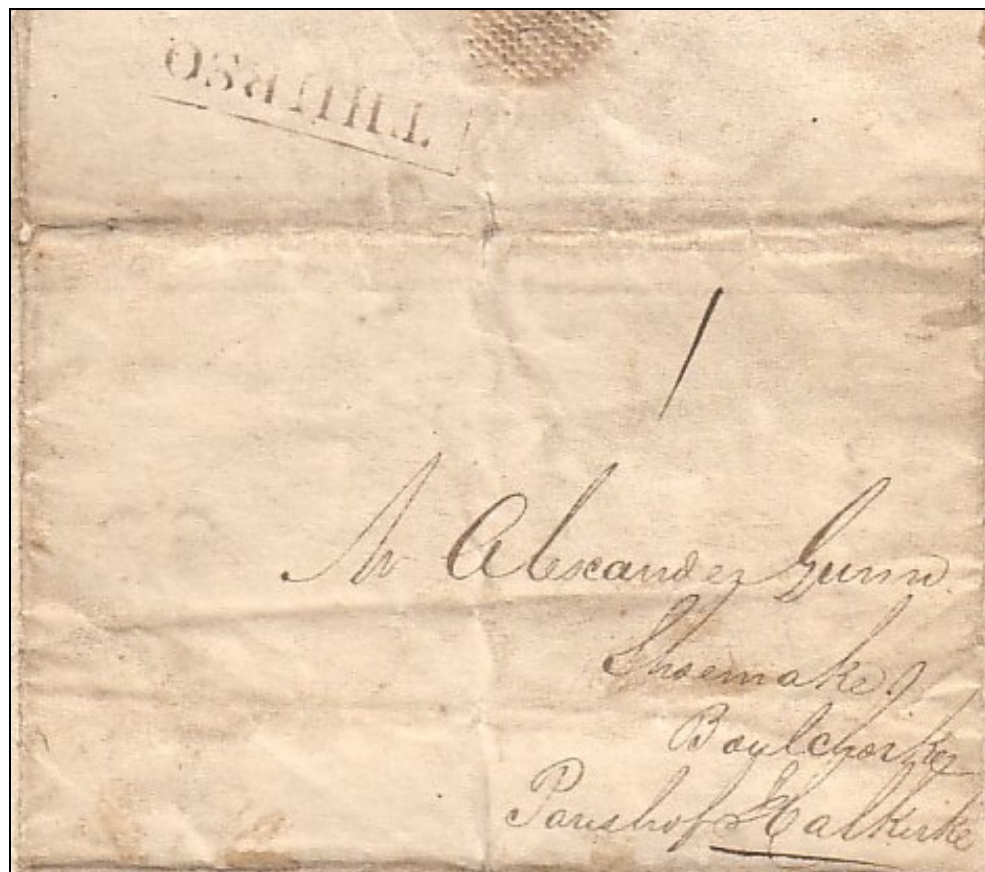 THURSO
1
Mr Alexander Gunn
Shoemaker
Parish of Halkirke